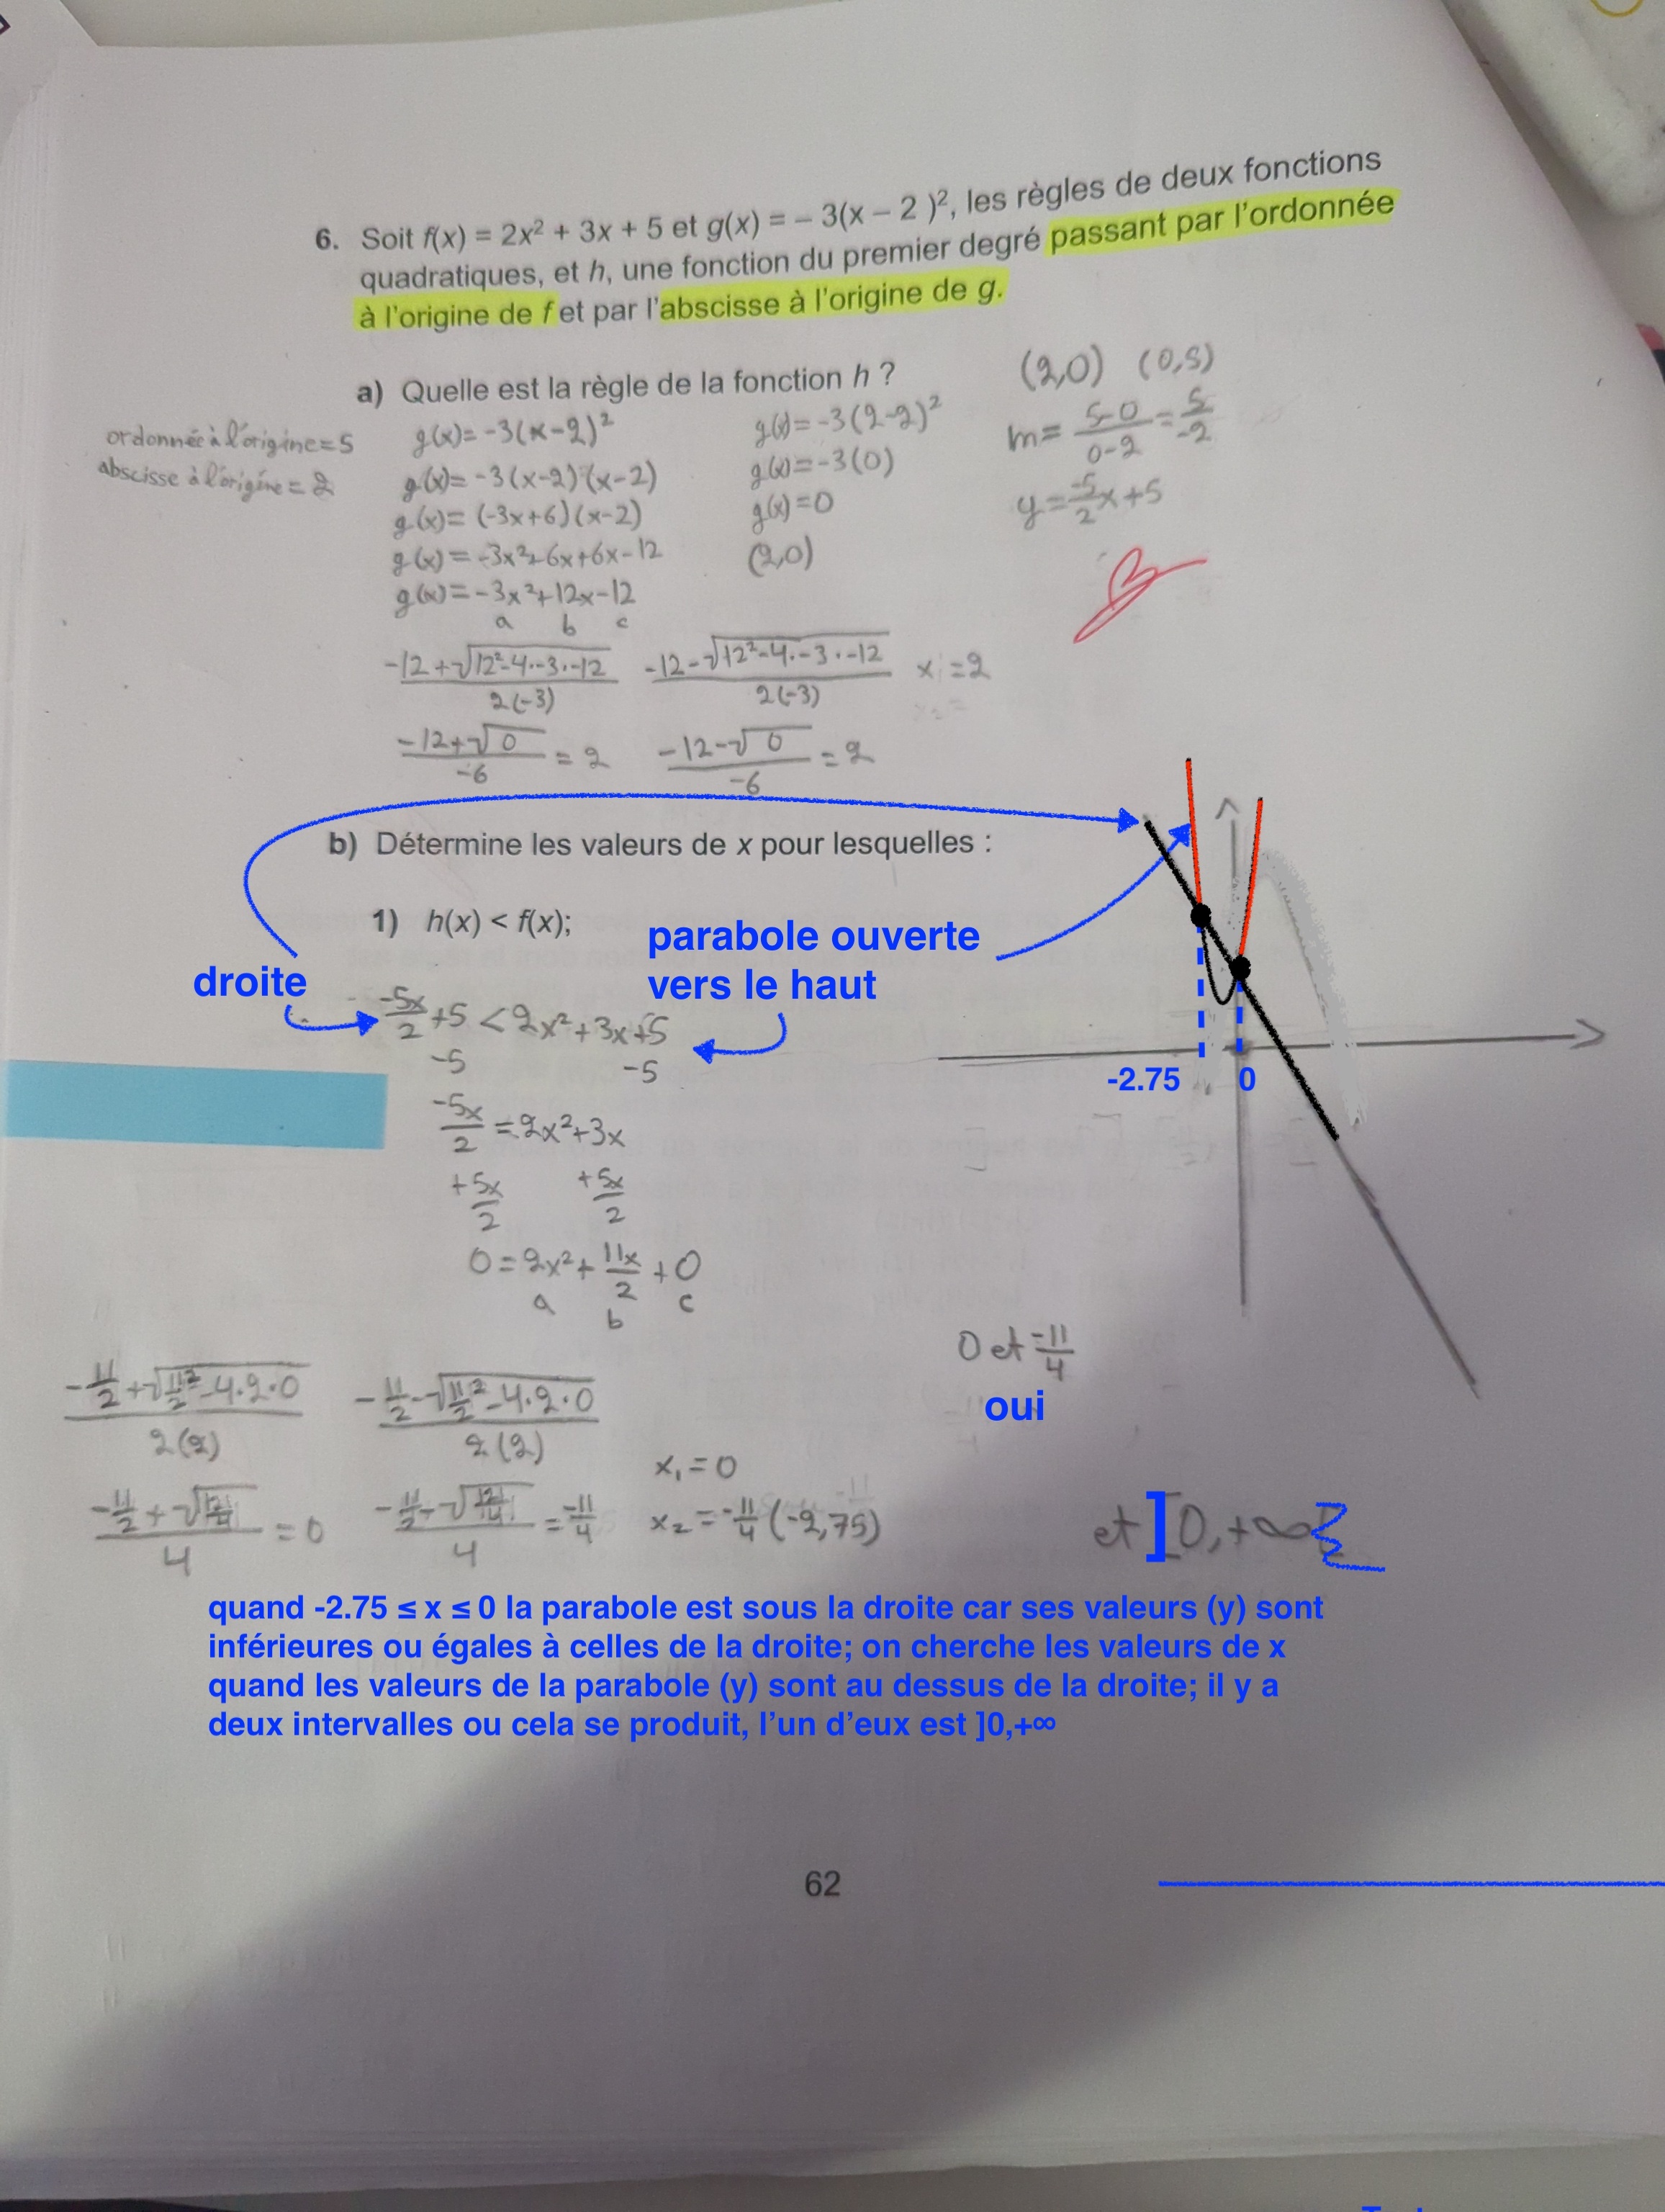 6. Soit f(x) = 2x² + 3x + 5 et g(x) = – 3(x – 2 )², les règles de deux fonctions
quadratiques, et h, une fonction du premier degré passant par l'ordonnée
à l'origine de f et par l'abscisse à l'origine de g.
a) Quelle est la règle de la fonction h ?
(2,0) (0,5)
ordonnée à l'origine = 5
abscisse à l'origine = 2
g(x) = -3(x-2)²
g(x) = -3(x-2)(x-2)
g(x) = (-3x+6)(x-2)
g(x) = -3x²+6x+6x-12
g(x) = -3x²+12x-12
a b c
g(x) = -3(2-2)²
g(x) = -3(0)
g(x) = 0
(2,0)
m = 5-0/0-2 = 5/-2
y = -5/2x+5
-12+√12²-4·-3·-12 / 2(-3)
-12-√12²-4·-3·-12 / 2(-3)
x₁ = 2
-12+√0 / -6 = 2
-12-√0 / -6 = 2
b) Détermine les valeurs de x pour lesquelles :
1) h(x) < f(x);
droite
parabole ouverte
vers le haut
-5x/2 +5 < 2x²+3x+5
-5 -5
-5x/2 = 2x²+3x
+5x/2 +5x/2
0 = 2x² + 11x/2 + 0
a b c
-2.75 0
0 et -11/4
oui
-11/2 +√11/2² -4·2·0 / 2(2)
-11/2 -√11/2² -4·2·0 / 2(2)
-11/2 + √121/4 / 4 = 0
-11/2 - √121/4 / 4 = -11/4
x₁ = 0
x₂ = -11/4 (-2,75)
et ]0,+∞
quand -2.75 ≤ x ≤ 0 la parabole est sous la droite car ses valeurs (y) sont
inférieures ou égales à celles de la droite; on cherche les valeurs de x
quand les valeurs de la parabole (y) sont au dessus de la droite; il y a
deux intervalles ou cela se produit, l'un d'eux est ]0,+∞
62